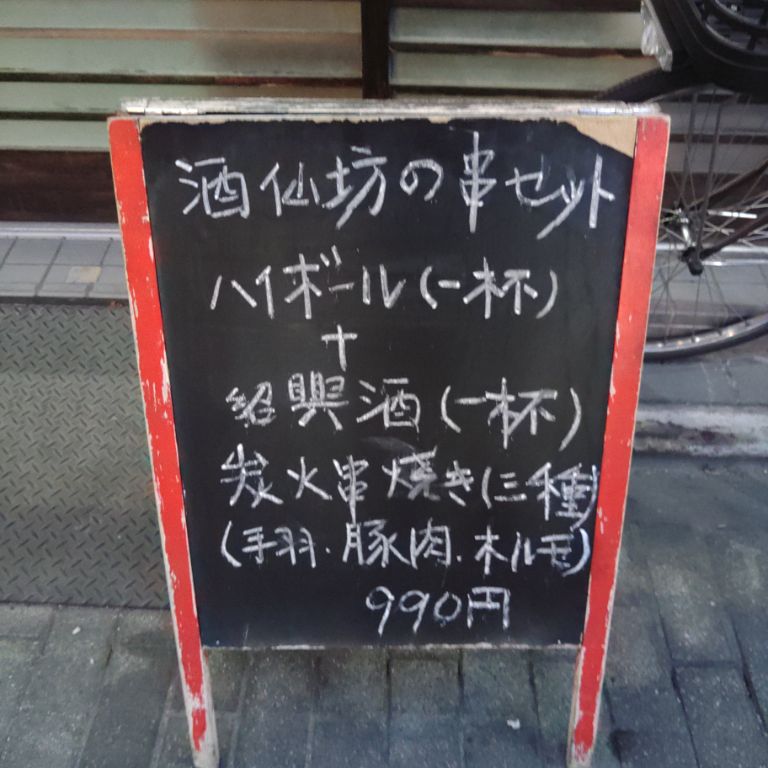 酒仙坊の串セット
ハイボール(一杯)
+
紹興酒(一杯)
炭火串焼き(三種)
(手羽・豚肉・ホルモン)
990円